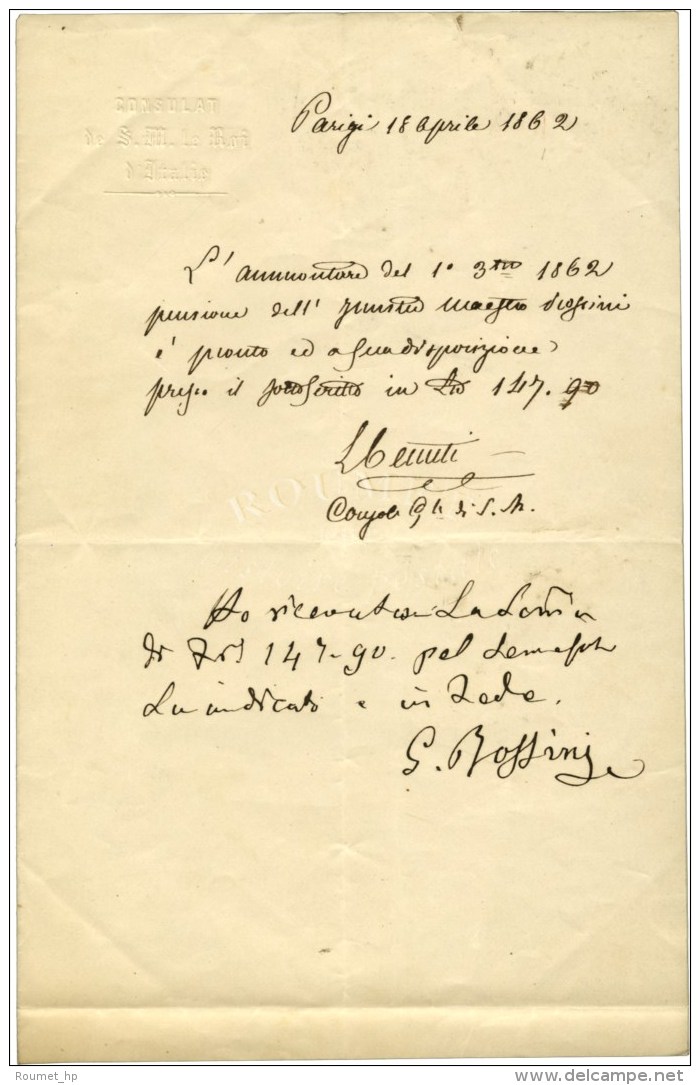 CONSULAT
de S. M. le Roi
d'Italie
Parigi 18 Aprile 1862
L'ammontare del 1º 3tre 1862
pensione dell' Maestro Rossini
è pronto ed a sua disposizione
presso il sottoscritto in 147.90
Console Gle di S. M.
Ho ricevuto la
di 147.90. pel
indicato e in fede.
G. Rossini
ROUMET
Roumet_hp
www.delcampe.net